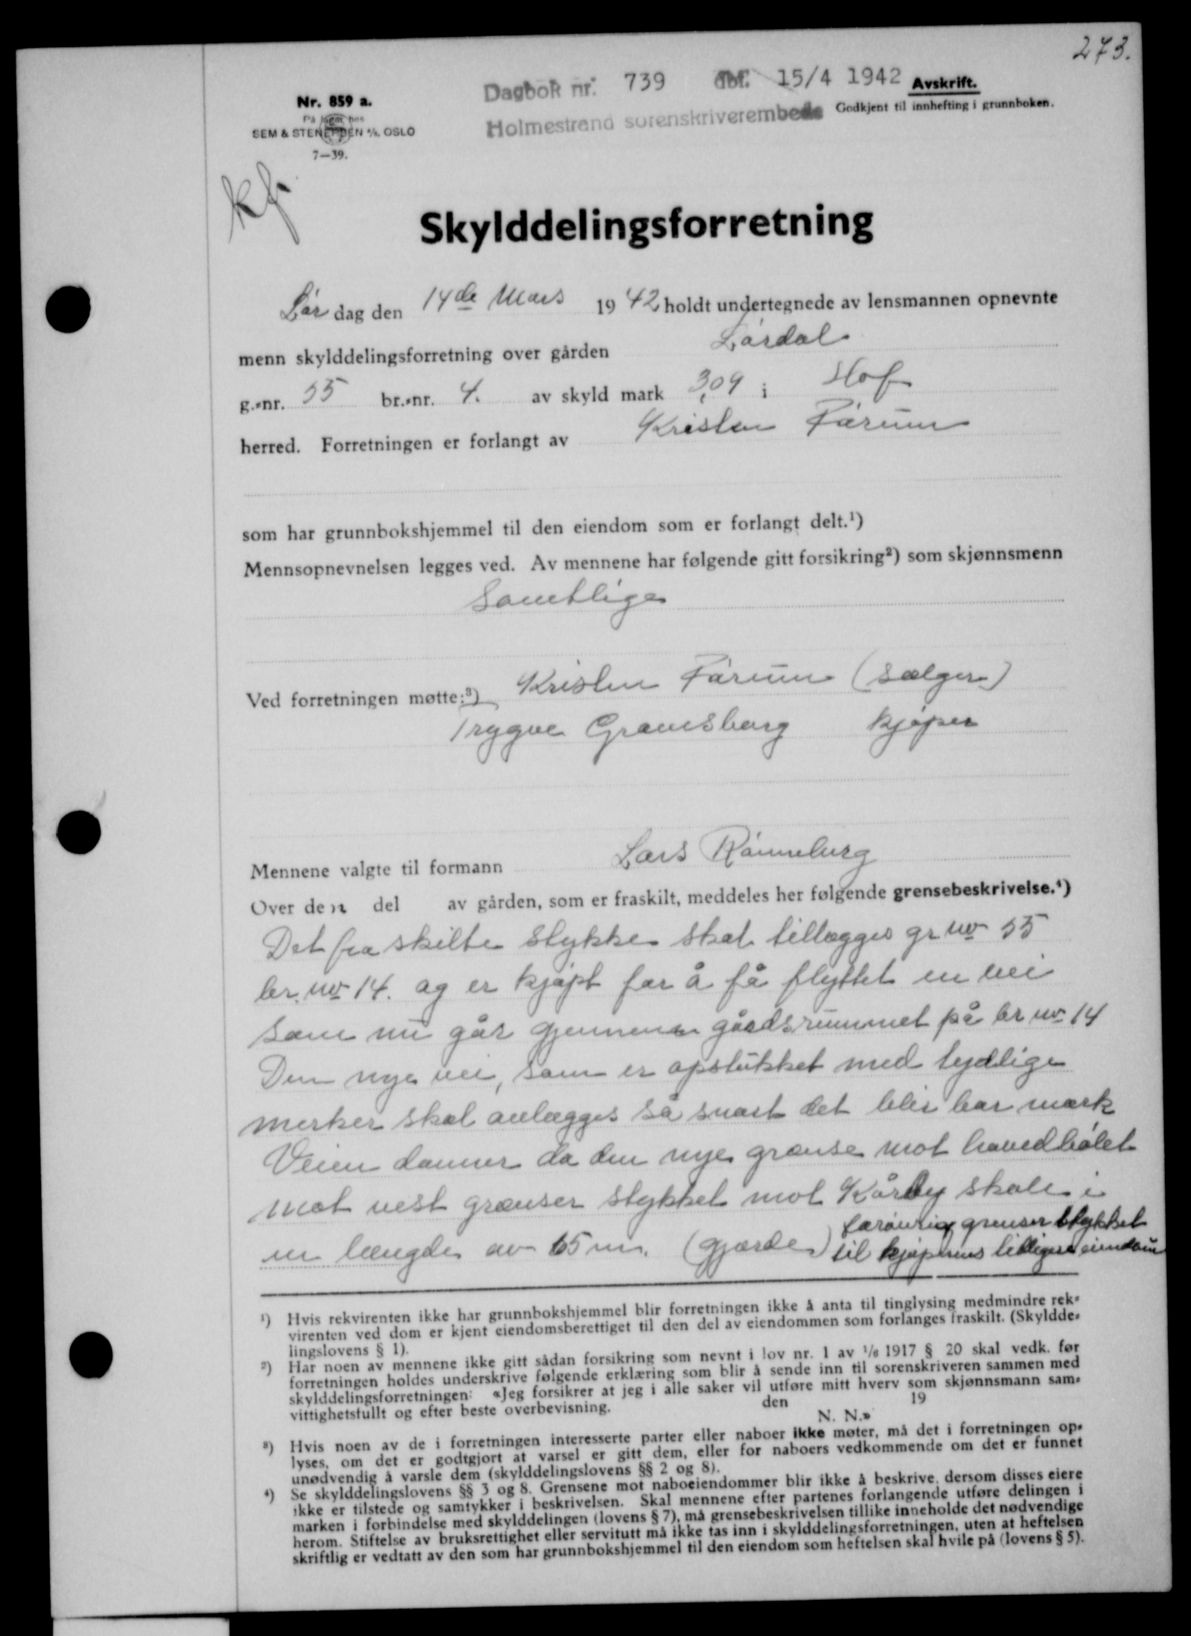 273.
Nr. 859 a.
SEM & STENERSEN A/S. OSLO
7—39.
Dagbok nr. 739 dbf. 15/4 1942
Holmestrand sorenskriverembede
Avskrift.
Godkjent til innhefting i grunnboken.
kf.
Skylddelingsforretning
Lør dag den 14de Mars 1942 holdt undertegnede av lensmannen opnevnte
menn skylddelingsforretning over gården Lørdal
g.-nr. 55 br.-nr. 4. av skyld mark 3,09 i Hof
herred. Forretningen er forlangt av Kristen Førum
som har grunnbokshjemmel til den eiendom som er forlangt delt.¹)
Mennsopnevnelsen legges ved. Av mennene har følgende gitt forsikring²) som skjønnsmenn
Samtlige
Ved forretningen møtte:³) Kristen Førum (sælger)
Trygve Gransberg kjøper
Mennene valgte til formann Lars Rønneburg
Over den del av gården, som er fraskilt, meddeles her følgende grensebeskrivelse.⁴)
Det fra skilte stykke skal tillægges gr no 55
br. no 14. og er kjøpt for å få flyttet en vei
som nu går gjennem gårdsrummet på br no 14
Den nye vei, som er opstukket med tydlige
merker skal anlægges så snart det blir bar mark
Veien danner da den nye grænse mot hovedbølet
mot vest grænser stykket mot Kårby skole i
en længde av 65 m. (gjærde) forøvrig grenser stykket
til kjøperens tidligere eiendom
¹) Hvis rekvirenten ikke har grunnbokshjemmel blir forretningen ikke å anta til tinglysing medmindre rek-
virenten ved dom er kjent eiendomsberettiget til den del av eiendommen som forlanges fraskilt. (Skyldde-
lingslovens § 1).
²) Har noen av mennene ikke gitt sådan forsikring som nevnt i lov nr. 1 av 1/6 1917 § 20 skal vedk. før
forretningen holdes underskrive følgende erklæring som blir å sende inn til sorenskriveren sammen med
skylddelingsforretningen: «Jeg forsikrer at jeg i alle saker vil utføre mitt hverv som skjønnsmann sam-
vittighetsfullt og efter beste overbevisning. den 19
N. N.»
³) Hvis noen av de i forretningen interesserte parter eller naboer ikke møter, må det i forretningen op-
lyses, om det er godtgjort at varsel er gitt dem, eller for naboers vedkommende om det er funnet
unødvendig å varsle dem (skylddelingslovens §§ 2 og 8).
⁴) Se skylddelingslovens §§ 3 og 8. Grensene mot naboeiendommer blir ikke å beskrive, dersom disses eiere
ikke er tilstede og samtykker i beskrivelsen. Skal mennene efter partenes forlangende utføre delingen i
marken i forbindelse med skylddelingen (lovens § 7), må grensebeskrivelsen tillike inneholde det nødvendige
herom. Stiftelse av bruksrettighet eller servitutt må ikke tas inn i skylddelingsforretningen, uten at heftelsen
skriftlig er vedtatt av den som har grunnbokshjemmel til den eiendom som heftelsen skal hvile på (lovens § 5).